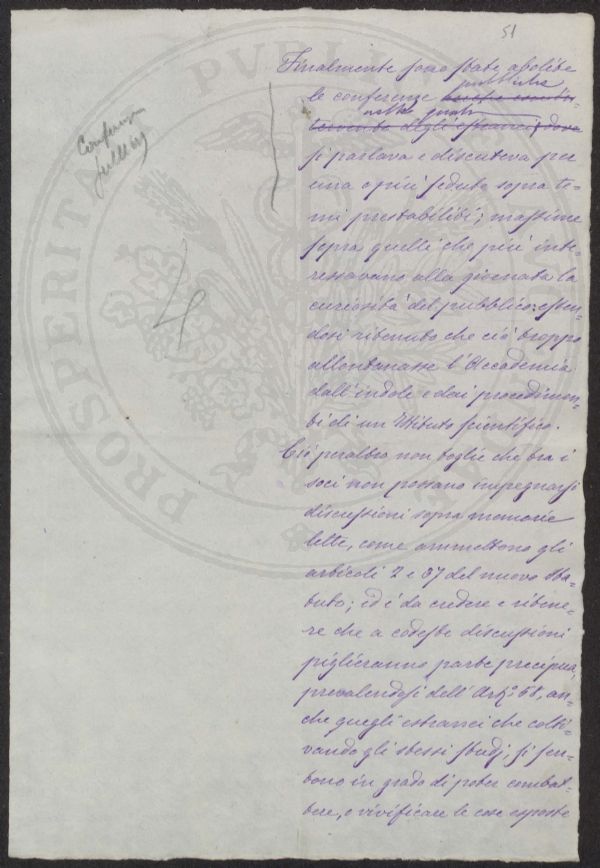 51
Conferenze
pubblich
Finalmente sono state abolite
le conferenze pubbliche
nelle quali
tervento degli estranei, dove
si parlava e discuteva per
una o più sedute sopra te-
mi prestabiliti; massime
sopra quelli che più inte-
ressavano alla giornata la
curiosità del pubblico: essen-
dosi ritenuto che ciò troppo
allontanasse l'Accademia
dall'indole e dai procedimen-
ti di un Istituto scientifico.
Ciò peraltro non toglie che tra i
soci non possano impegnarsi
discussioni sopra memorie
lette, come ammettono gli
articoli 2 e 37 del nuovo Sta-
tuto; ed è da credere e ritene-
re che a codeste discussioni
piglieranno parte precipua,
prevalendosi dell'Art.º 58, an-
che quegli estranei che colti-
vando gli stessi studj, si sen-
tono in grado di poter combat-
tere, o vivificare le cose esposte
PROSPERITA
PVBLI